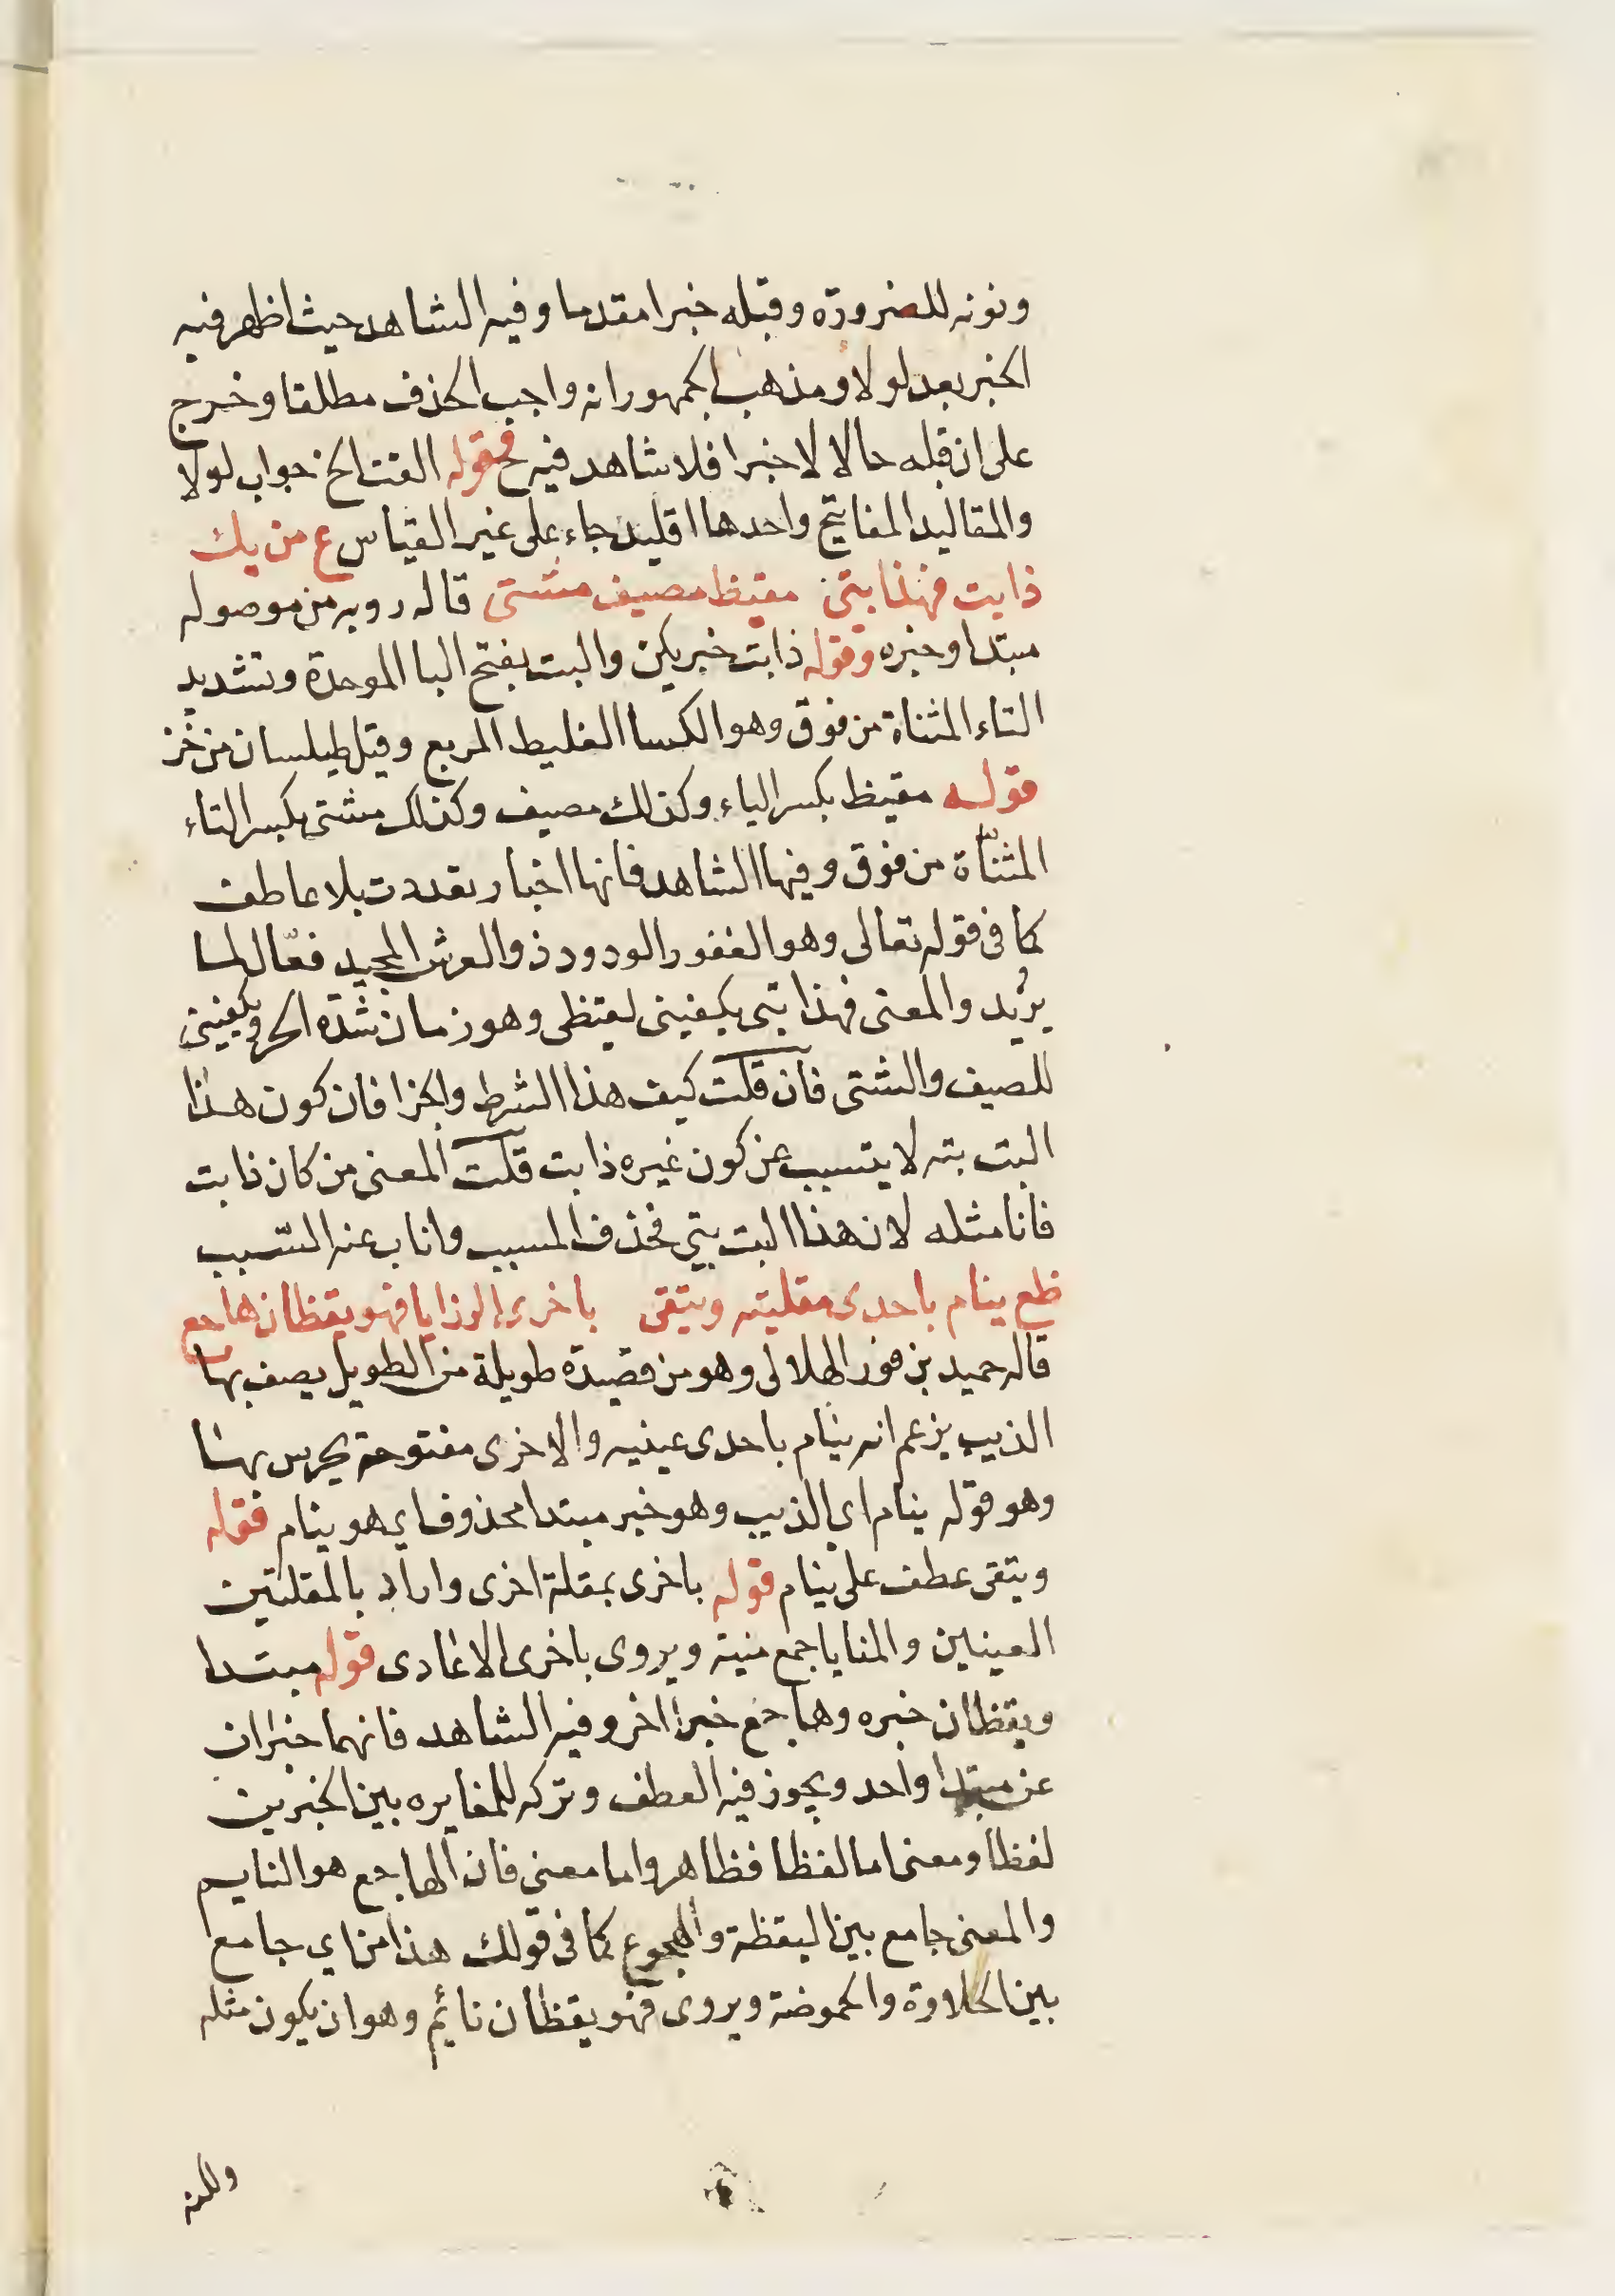 ونونه للضرورة وقبله خبرا مقدما وفيه الشاهد حيث اظهر فيه
الخبر بعد لولا ومذهب الجمهور انه واجب الحذف مطلقا وخرج
على ان قبله حالا لا خبرا فلا شاهد فيه ح قوله القت الخ جواب لولا
والمقاليد المفاتيح واحدها اقليد جاء على غير القياس ع من يك
ذا بت فهذا بتي مقيظ مصيف مشتي قاله روبه من موصوله
مبتدا وخبره وقوله ذا بت خبر يكن والبت بفتح البا الموحدة وتشديد
التاء المثناة من فوق وهو الكسا الغليظ المربع وقيل طيلسان من خز
قوله مقيظ بكسر الياء وكذلك مصيف وكذلك مشتي بكسر التاء
المثناة من فوق وفيها الشاهد فانها اخبار تعددت بلا عاطف
كما في قوله تعالى وهو الغفور الودود ذو العرش المجيد فعّال لما
يريد والمعنى فهذا بتي يكفيني لقيظي وهو زمان شدة الحر ويكفيني
للصيف والشتي فان قلت كيف هذا الشرط والجزا فان كون هذا
البت بته لا يتسبب عن كون غيره ذا بت قلت المعنى من كان ذا بت
فانا مثله لان هذا البت بتي فحذف المسبب واناب عنه السّبب
ظع ينام باحدى مقلتيه ويتقى باخرى الرزايا فهو يقظان هاجع
قاله حميد بن ثور الهلالي وهو من قصيدة طويلة من الطويل يصف بها
الذيب يزعم انه ينام باحدى عينيه والاخرى مفتوحة يحرس بها
وهو قوله ينام اي الذيب وهو خبر مبتدا محذوف اي هو ينام قوله
ويتقى عطف على ينام قوله باخرى بمقلة اخرى واراد بالمقلتين
العينين والمنايا جمع منية ويروى باخرى الاعادى قوله مبتدا
ويقظان خبره وهاجع خبرا اخر وفيه الشاهد فانهما خبران
عن مبتدا واحد ويجوز فيه العطف وتركه للمغايره بين الخبرين
لفظا ومعنى اما لفظا فظاهر واما معنى فان الهاجع هو النايم
والمعنى جامع بين اليقظة والهجوع كما في قولك هذا من اي جامع
بين الحلاوة والحموضة ويروى فهو يقظان نائم وهو ان يكون مثله
ولكنه